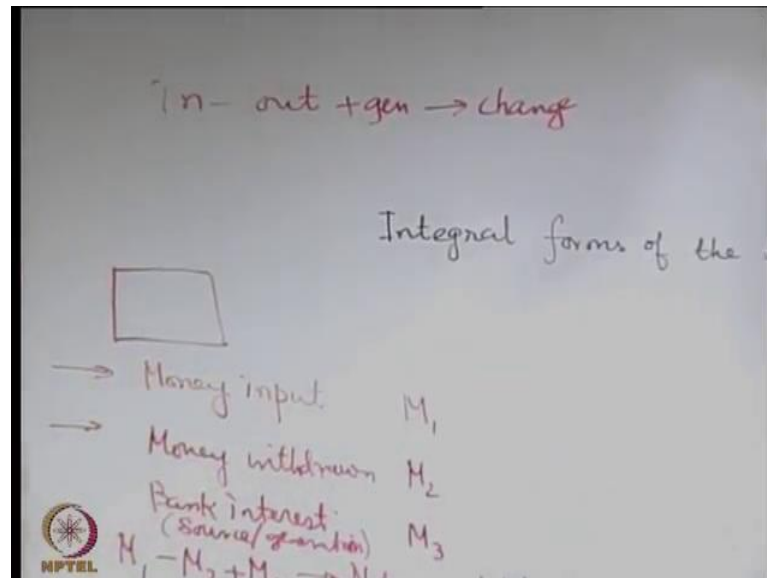 In - out + gen → change
Integral forms of the
→ Money input M₁
→ Money withdrawn M₂
Bank interest
(Source/generation) M₃
M₁ - M₂ + M
NPTEL